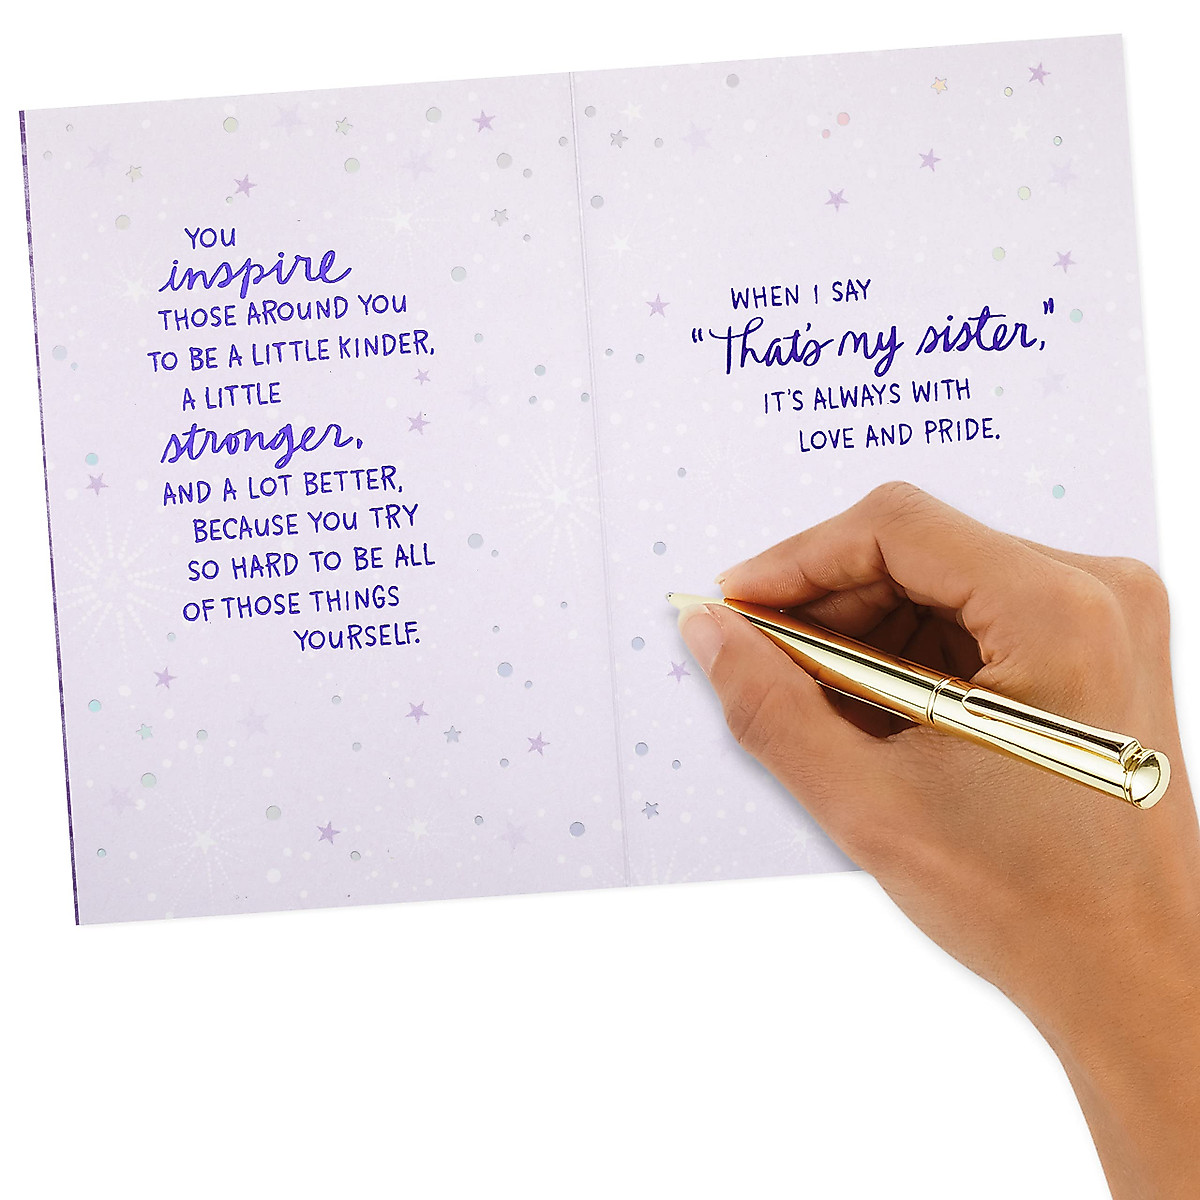 YOU
inspire
THOSE AROUND YOU
TO BE A LITTLE KINDER,
A LITTLE
stronger,
AND A LOT BETTER,
BECAUSE YOU TRY
SO HARD TO BE ALL
OF THOSE THINGS
YOURSELF.
WHEN I SAY
“That's my sister,”
IT'S ALWAYS WITH
LOVE AND PRIDE.